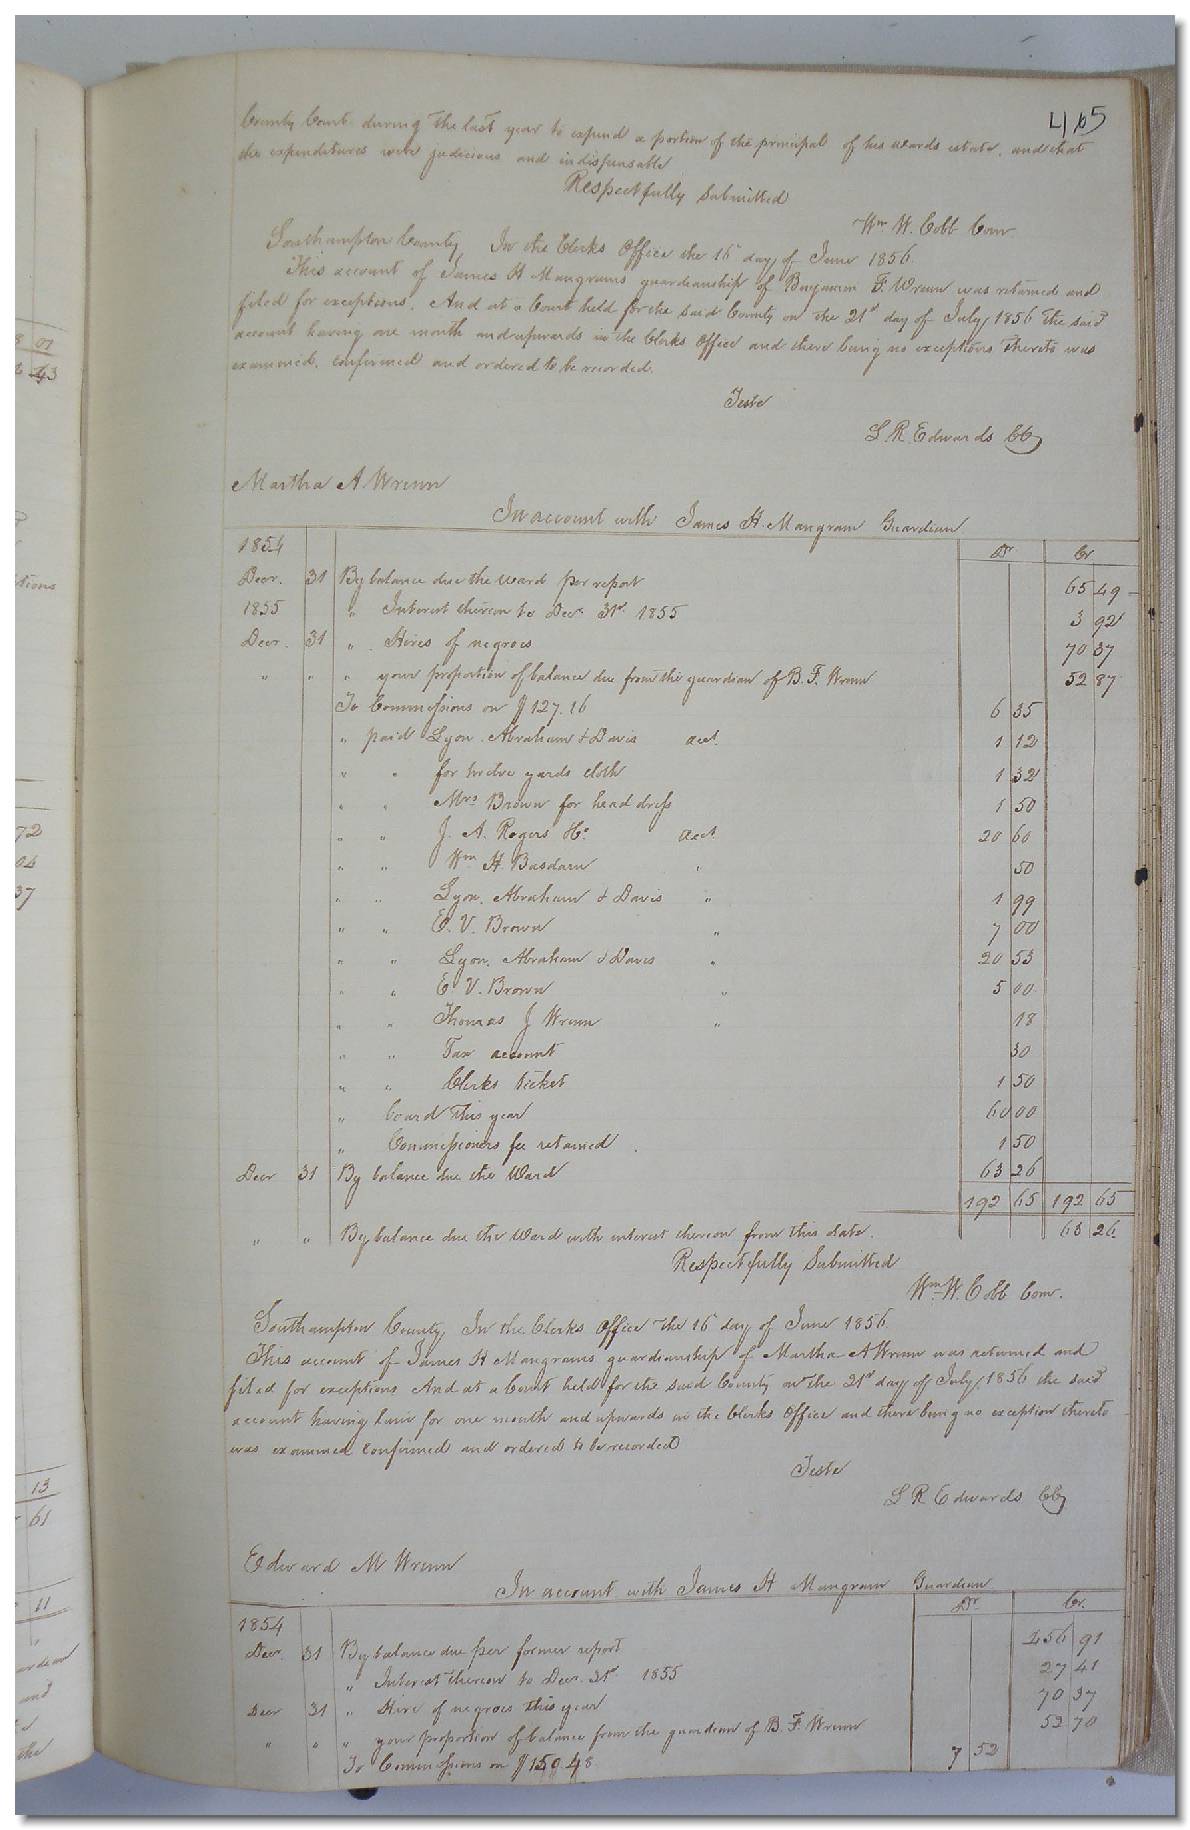 405
County Court during the last year to expend a portion of the principal of his wards estate, and that
the expenditures were judicious and indispensable
Respectfully Submitted
Wm W. Cobb Com
Southampton County In the Clerks Office the 16 day of June 1856.
This account of James H Mangrams guardianship of Benjamin F. Wrenn was returned and
filed for exceptions. And at a Court held for the said County on the 21st day of July 1856 the said
account having one month and upwards in the Clerks Office and there being no exceptions thereto was
examined, confirmed and ordered to be recorded.
Teste
L. R. Edwards CC
Martha A Wrenn
In account with James H. Mangram Guardian
1854 Dr Cr
Decr. 31 By balance due the ward per report 65 49
1855 " Interest thereon to Decr 31st 1855 3 92
Decr. 31 " Hires of negroes 70 37
" " " your proportion of balance due from the guardian of B. F. Wrenn 52 87
To Commissions on $127.16 6 35
" paid Lyon, Abraham & Davis acct. 1 12
" " for twelve yards cloth 1 32
" " Mrs Brown for head dress 1 50
" " J. A. Rogers acct 20 60
" " Wm H. " 50
" " Lyon, Abraham & Davis " 1 99
" " E. V. Brown " 7 00
" " Lyon, Abraham & Davis " 20 53
" " E V. Brown " 5 00
" " Thomas J Wrenn " 18
" " Tax account 30
" " Clerks ticket 1 50
" board this year 60 00
" Commissioners fee retained. 1 50
Decr 31 By balance due the Ward 63 26
192 65 192 65
" " By balance due the Ward with interest thereon from this date. 63 26
Respectfully Submitted
Wm W. Cobb Com.
Southampton County, In the Clerks Office the 16 day of June 1856.
This account of James H Mangrams guardianship of Martha A Wrenn was returned and
filed for exceptions And at a Court held for the said County on the 21st day of July 1856 the said
account having lain for one month and upwards in the Clerks Office and there being no exception thereto
was examined confirmed and ordered to be recorded
Teste
L R Edwards CC
Edward M Wrenn
In account with James H Mangram Guardian
1854 Dr Cr.
Decr. 31 By balance due per former report 456 91
" Interest thereon to Decr. 31st 1855 27 41
Decr 31 " Hire of negroes this year 70 37
" " " your proportion of balance from the guardian of B. F. Wrenn 52 70
To Commissions on $150.48 7 52